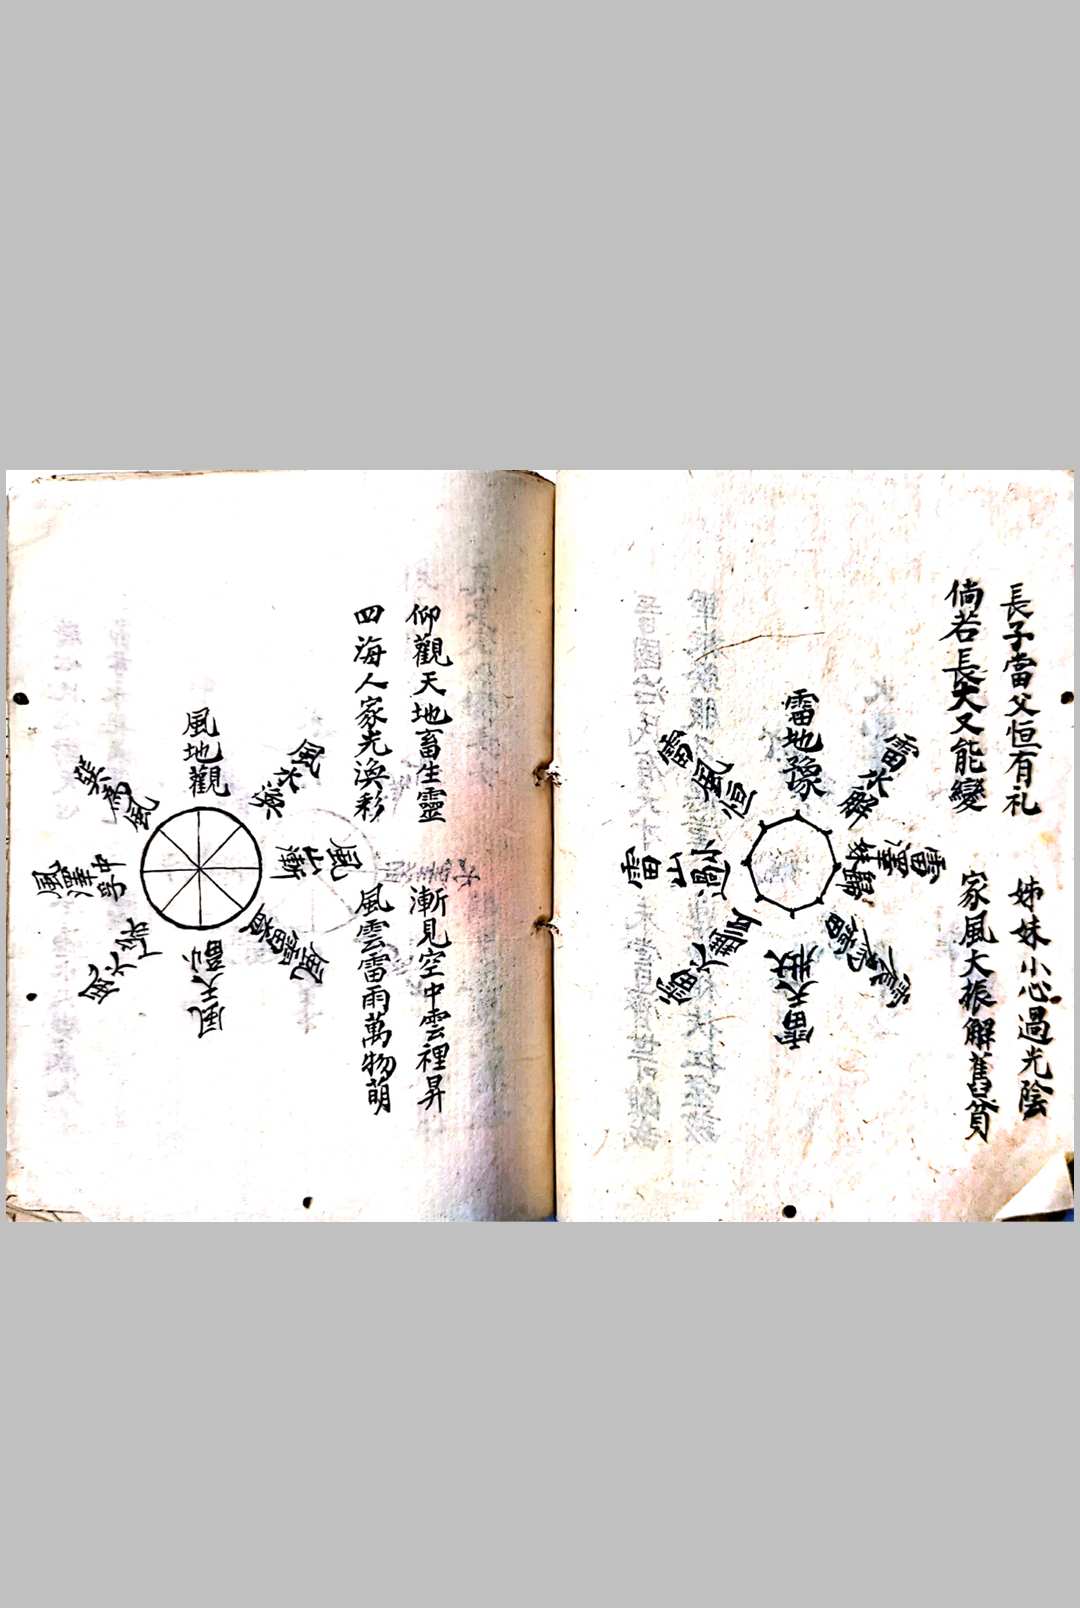 長子當父恒有礼 姊妹小心過光陰
倘若長大又能變 家風大振解舊貧
雷地豫
雷水解
雷澤歸妹
震為雷
雷天壯
雷火豐
雷山小過
雷風恒
仰觀天地畜生靈 漸見空中雲裡昇
四海人家光渙彩 風雲雷雨萬物萌
風地觀
風水渙
風山漸
風雷益
風天小畜
風火家人
風澤中孚
巽為風